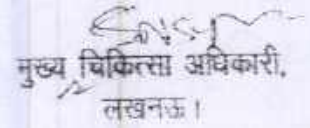 मुख्य चिकित्सा अधिकारी,
लखनऊ।